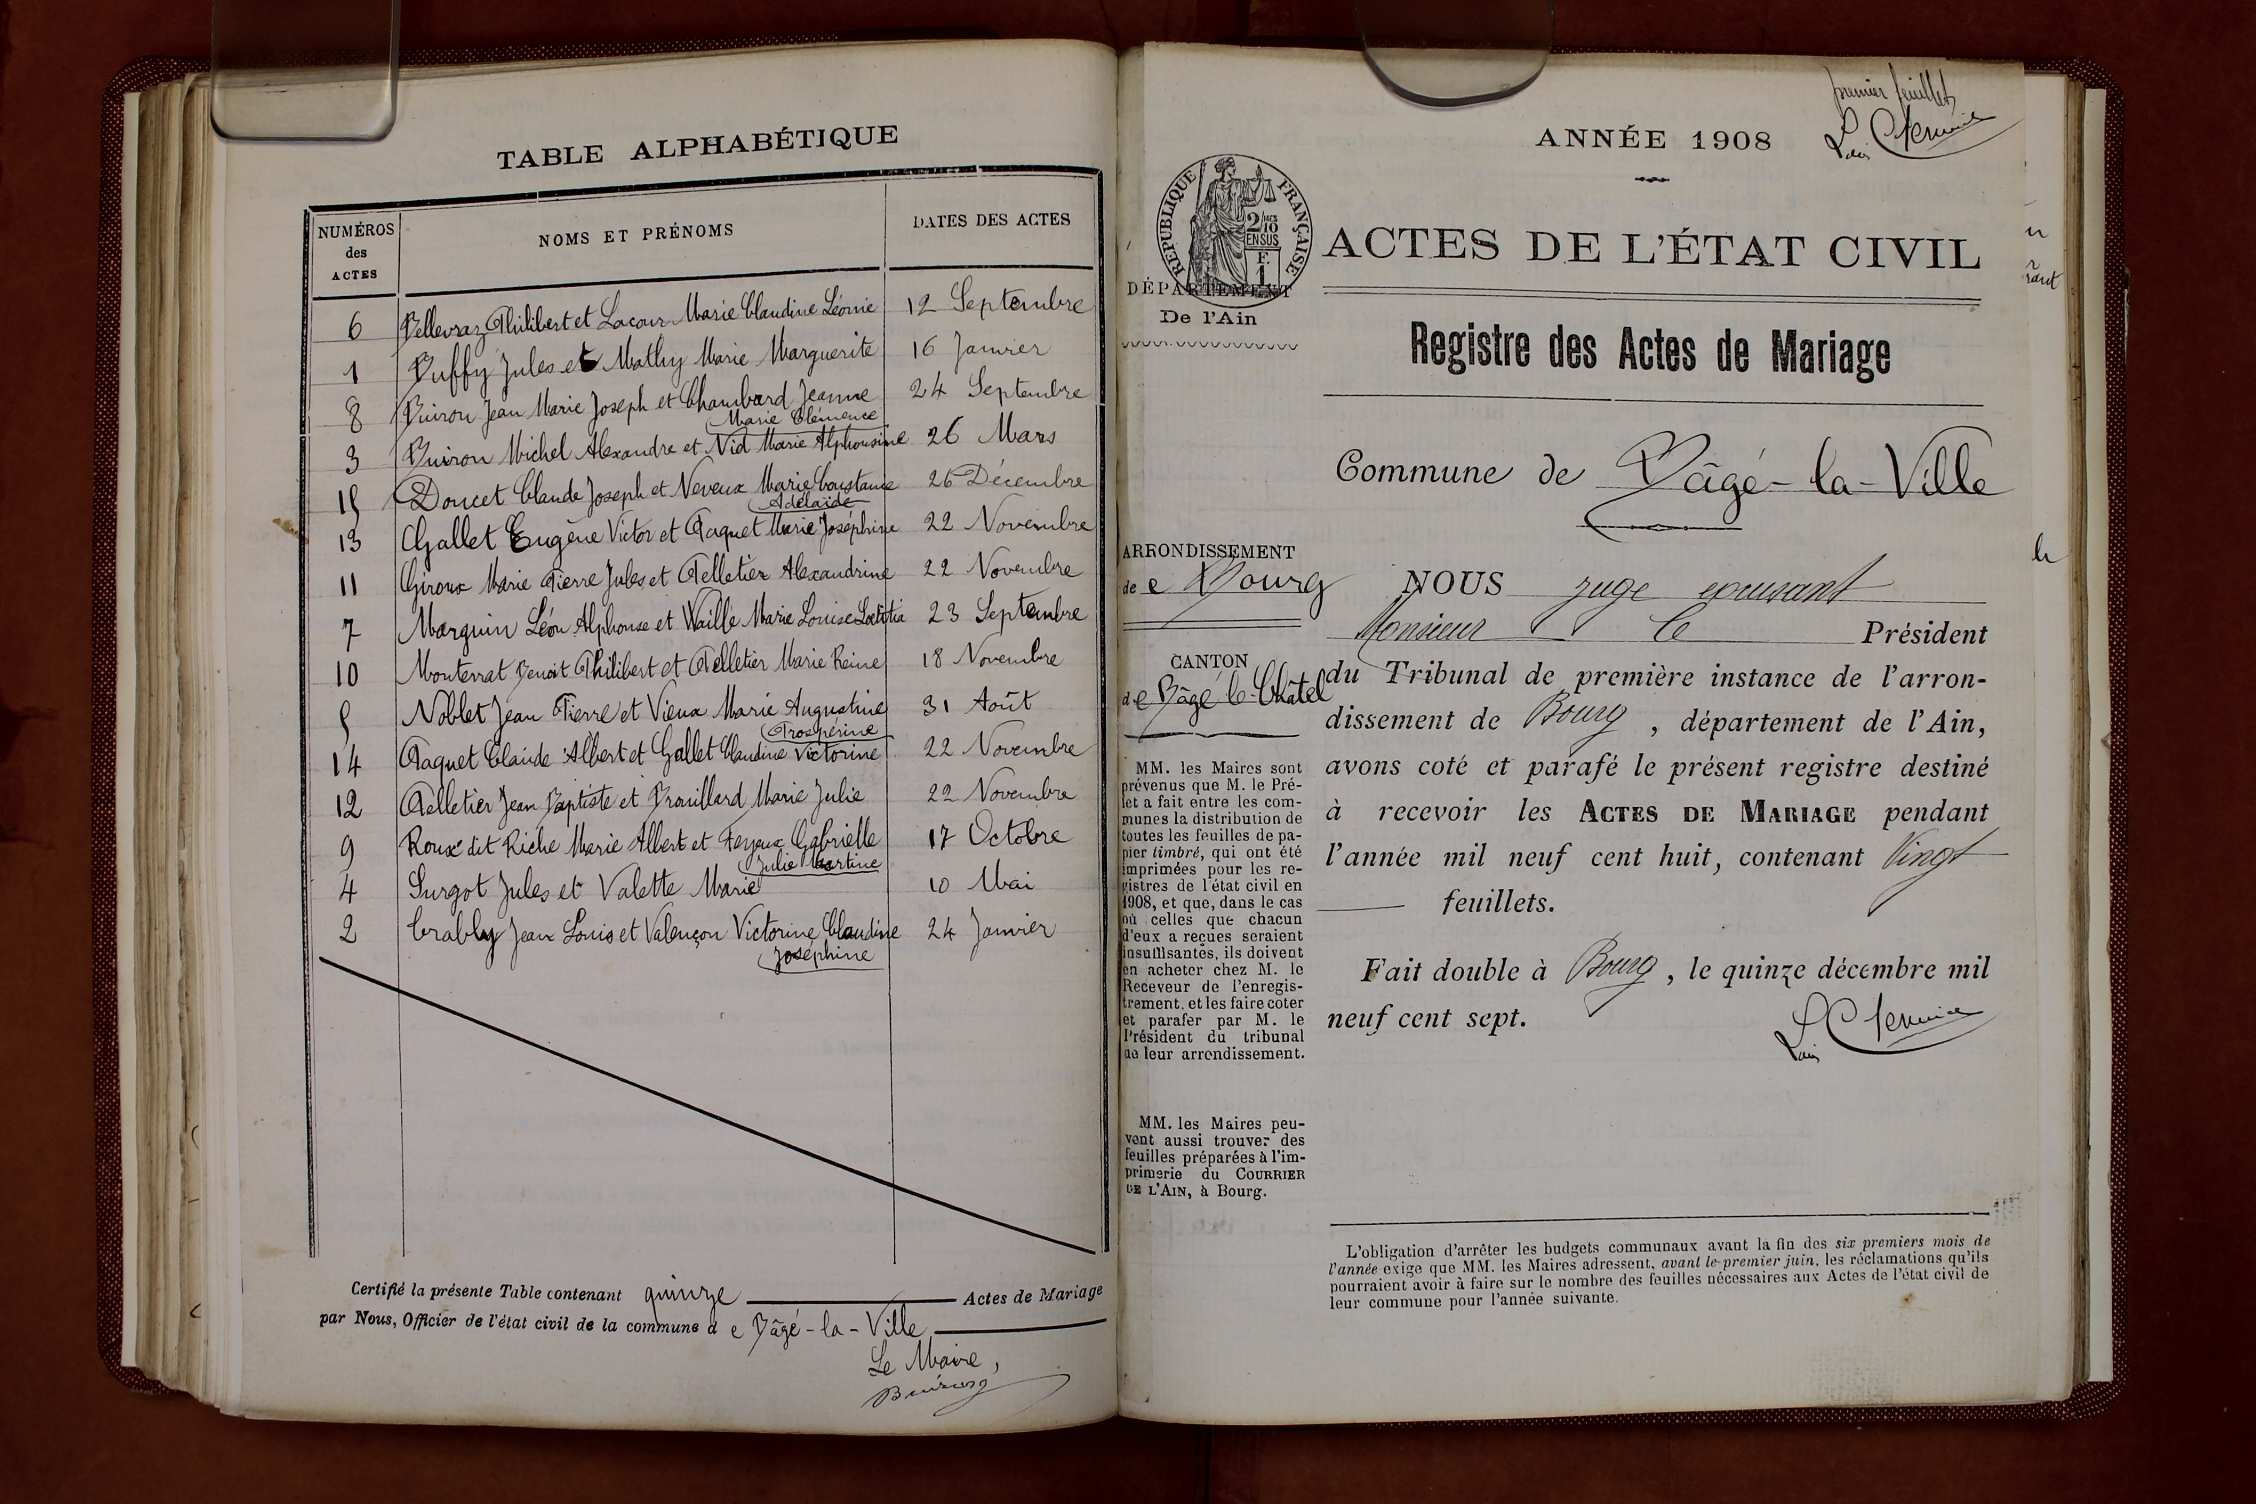 TABLE ALPHABÉTIQUE
NUMÉROS des ACTES
NOMS ET PRÉNOMS
DATES DES ACTES
6 Bellevraz Philibert et Lacour Marie Claudine Léonie 12 Septembre
1 Buffy Jules et Mathy Marie Marguerite 16 Janvier
8 Buiron Jean Marie Joseph et Chambard Jeanne 24 Septembre
Marie Clémence
3 Buiron Michel Alexandre et Nid Marie Alphonsine 26 Mars
15 Doucet Claude Joseph et Neveux Marie Constance 26 Décembre
Adélaïde
13 Gallet Eugène Victor et Paquet Marie Joséphine 22 Novembre
11 Giroux Marie Pierre Jules et Pelletier Alexandrine 22 Novembre
7 Marguin Léon Alphonse et Waille Marie Louise Lœtitia 23 Septembre
10 Monterrat Benoit Philibert et Pelletier Marie Reine 18 Novembre
5 Noblet Jean Pierre et Vieux Marie Augustine 31 Août
Prospérine
14 Paquet Claude Albert et Gallet Claudine Victorine 22 Novembre
12 Pelletier Jean Baptiste et Brouillard Marie Julie 22 Novembre
9 Roux dit Riche Marie Albert et Feyeux Gabrielle 17 Octobre
Julie Martine
4 Surgot Jules et Valette Marie 10 Mai
2 Crably Jean Louis et Valençon Victorine Claudine 24 Janvier
Joséphine
Certifié la présente Table contenant quinze Actes de Mariage
par Nous, Officier de l'état civil de la commune de Bâgé-la-Ville
Le Maire,
Buiron
premier feuillet
ANNÉE 1908
RÉPUBLIQUE FRANÇAISE
2/10 EN SUS
F. 1
ACTES DE L'ÉTAT CIVIL
DÉPARTEMENT
De l'Ain
Registre des Actes de Mariage
Commune de Bâgé-la-Ville
ARRONDISSEMENT
de Bourg
CANTON
de Bâgé-le-Châtel
MM. les Maires sont
prévenus que M. le Pré-
fet a fait entre les com-
munes la distribution de
toutes les feuilles de pa-
pier timbré, qui ont été
imprimées pour les re-
gistres de l'état civil en
1908, et que, dans le cas
où celles que chacun
d'eux a reçues seraient
insuffisantes, ils doivent
en acheter chez M. le
Receveur de l'enregis-
trement, et les faire coter
et parafer par M. le
Président du tribunal
de leur arrondissement.
MM. les Maires peu-
vent aussi trouver des
feuilles préparées à l'im-
primerie du COURRIER
DE L'AIN, à Bourg.
NOUS juge excusant
Monsieur le Président
du Tribunal de première instance de l'arron-
dissement de Bourg, département de l'Ain,
avons coté et parafé le présent registre destiné
à recevoir les ACTES DE MARIAGE pendant
l'année mil neuf cent huit, contenant Vingt
feuillets.
Fait double à Bourg, le quinze décembre mil
neuf cent sept.
L'obligation d'arrêter les budgets communaux avant la fin des six premiers mois de
l'année exige que MM. les Maires adressent, avant le premier juin, les réclamations qu'ils
pourraient avoir à faire sur le nombre des feuilles nécessaires aux Actes de l'état civil de
leur commune pour l'année suivante.